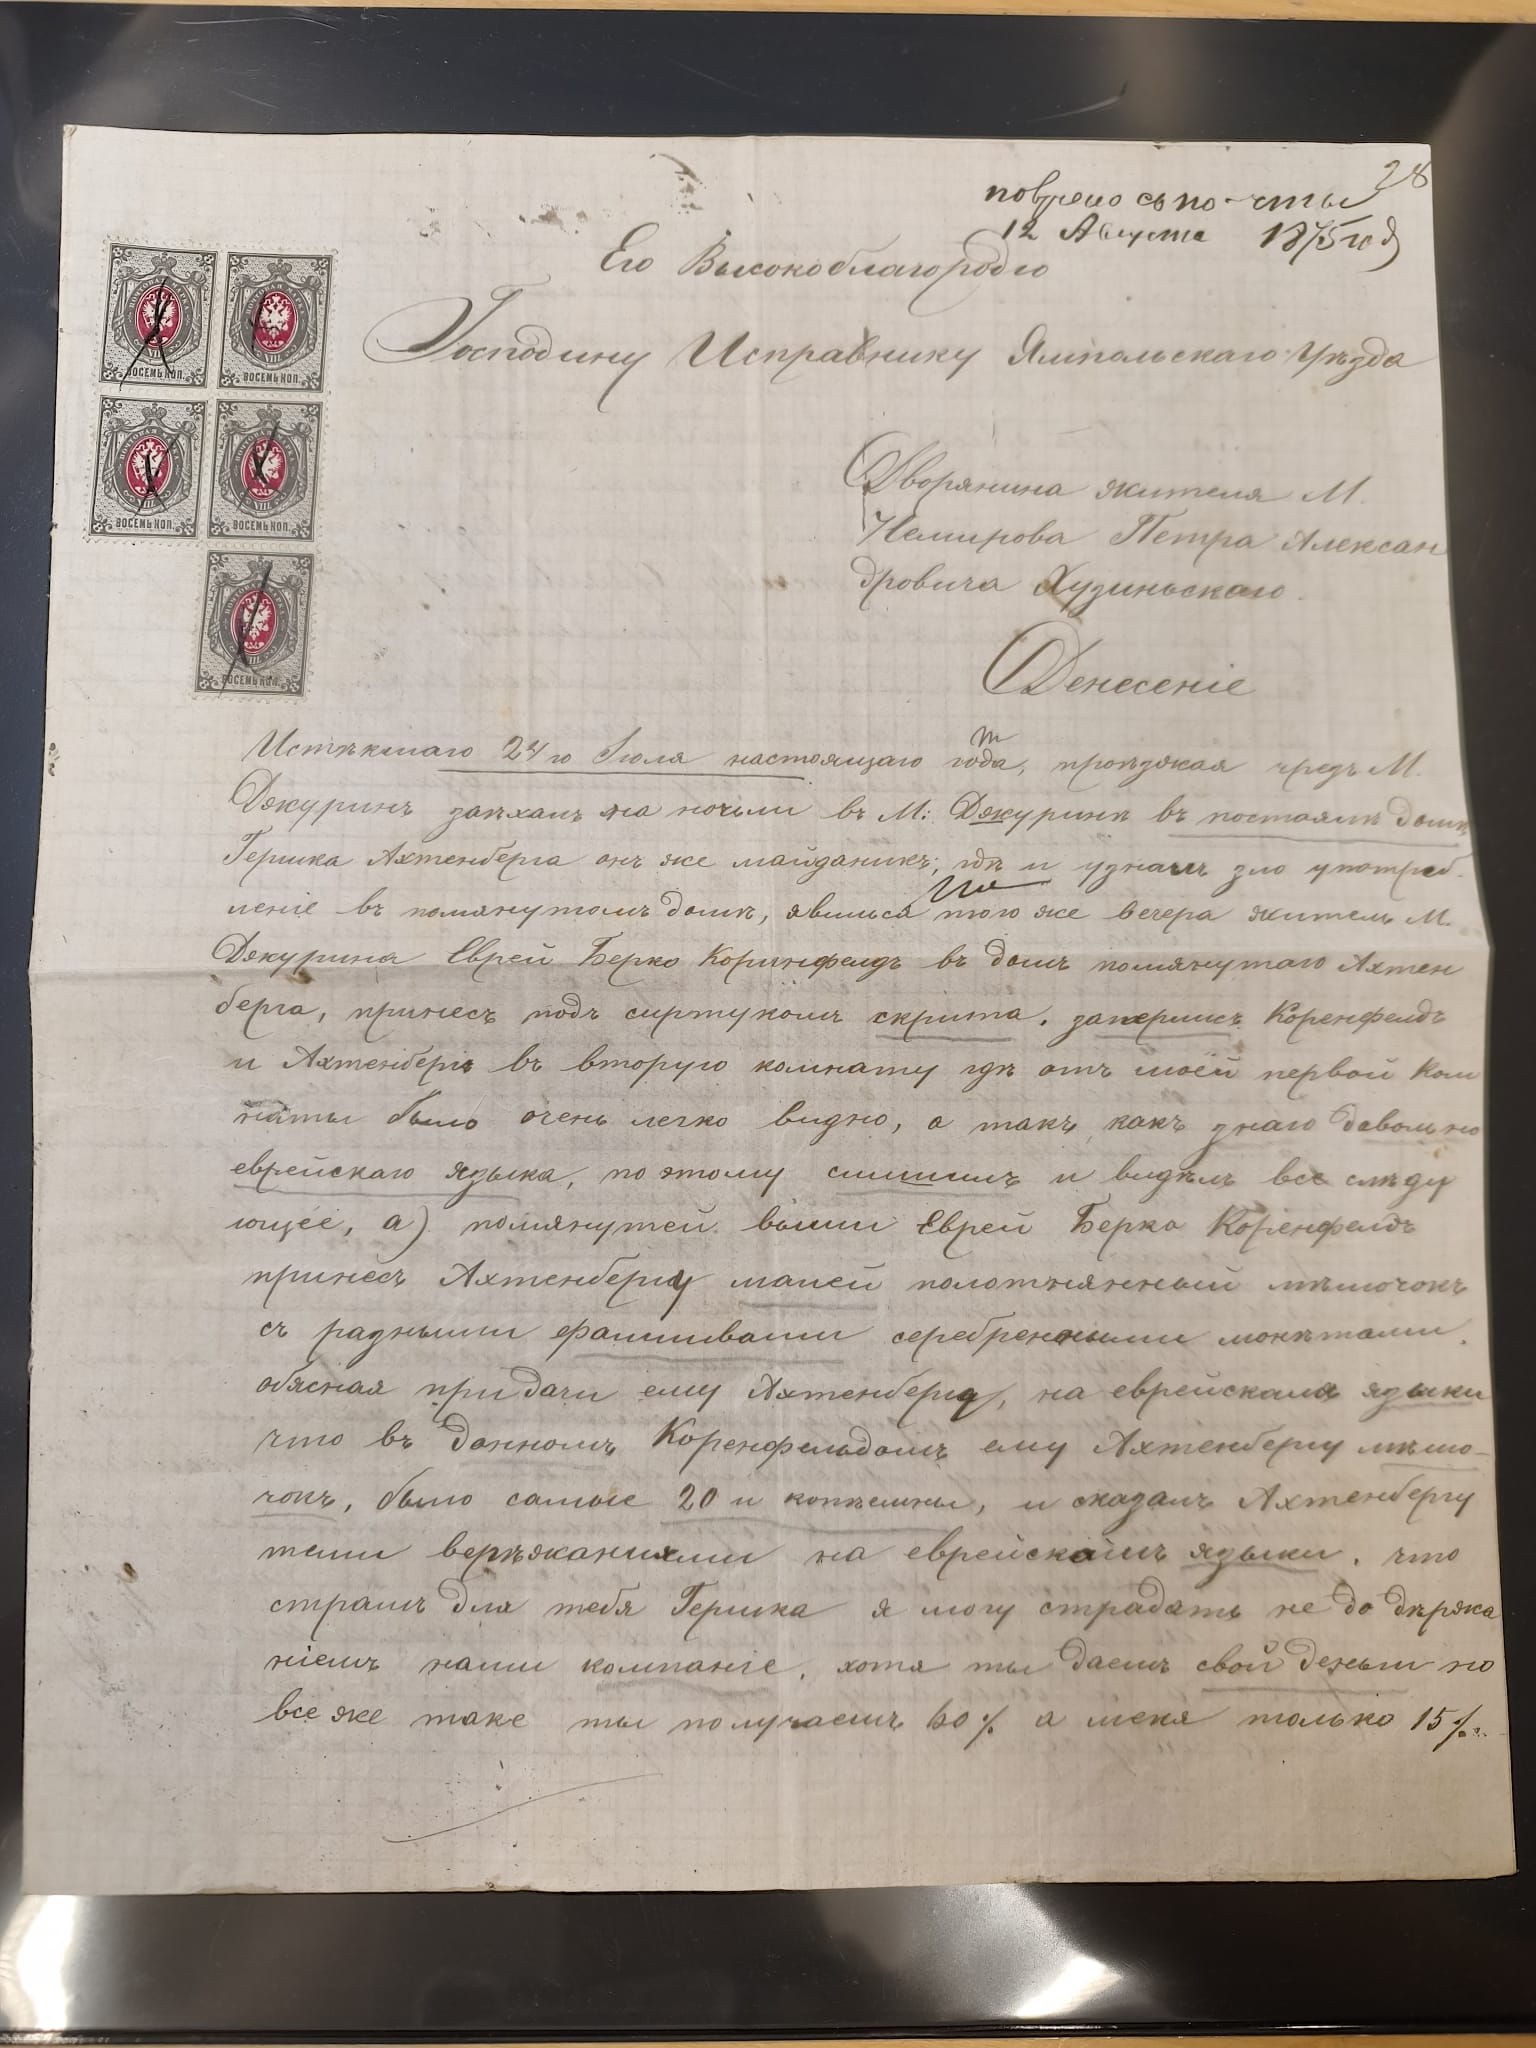 28
повучено съ по-чты
12 Августа 1875 год
Его Высокоблагородію
Господину Исправнику Ямпольскаго Уѣзда
ВОСЕМЬ КОП.
ВОСЕМЬ КОП.
ВОСЕМЬ КОП.
ВОСЕМЬ КОП.
ВОСЕМЬ КОП.
Дворянина жителя М.
Немирова Петра Алексан
дровича Хузиньскаго.
Денесеніе
Истѣкшаго 24го Іюля настоящаго года, проѣзжая чрезъ М.
Джуринъ заѣхалъ на ночьли въ М: Джуринѣ въ постоялѣ домѣ
Гершка Ахтенберга онъ же майданикъ; гдѣ и узналъ зло употреб-
леніе въ помянутомъ домѣ, явилься того же вечера житель М.
Джурина Еврей Берко Коринфелдъ въ домъ помянутаго Ахтен
берга, принесъ подъ сиртукомъ скрита. заперлисъ Коренфелдъ
и Ахтенбергъ въ вторую комнату гдѣ отъ моёй первой ком
наты было очень легко видно, а такъ какъ знаю довольно
еврейскаго языка, по этому слишилъ и видѣлъ все слѣду
ющее, а) помянутей выши Еврей Берко Коренфелдъ
принесъ Ахтенбергу малей полотнянный мѣшочокъ
съ разными фалшивами серебренными монѣтами.
обясная при дачи ему Ахтенбергу, на еврейскамъ языки
что въ данномъ Коренфельдомъ ему Ахтенбергу мѣшо-
чокъ, было самые 20 и копѣешны, и сказалъ Ахтенбергу
теми верѣжаніями на еврейскомъ языки. что
страмъ для тебя Гершка я могу страдать не до дѣржа
ніемъ нами компаніе. хотя ты даешъ свой деньги но
все же таке ты получаешъ 60% а меня только 15%.